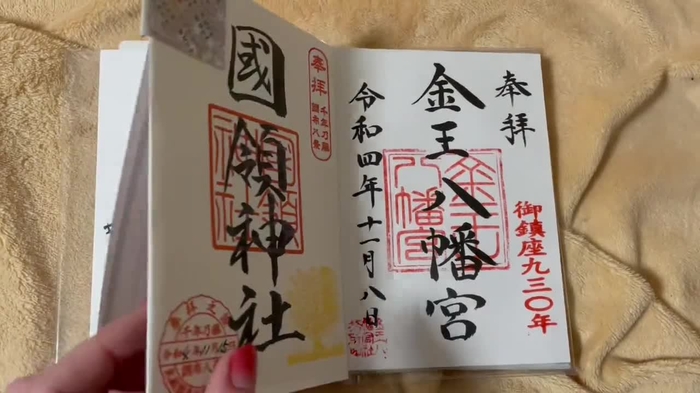 奉拝
金王八幡宮
御鎮座九三〇年
令和四年十一月八日
奉拝
千年乃藤
調布八景
國領神社
千年乃藤